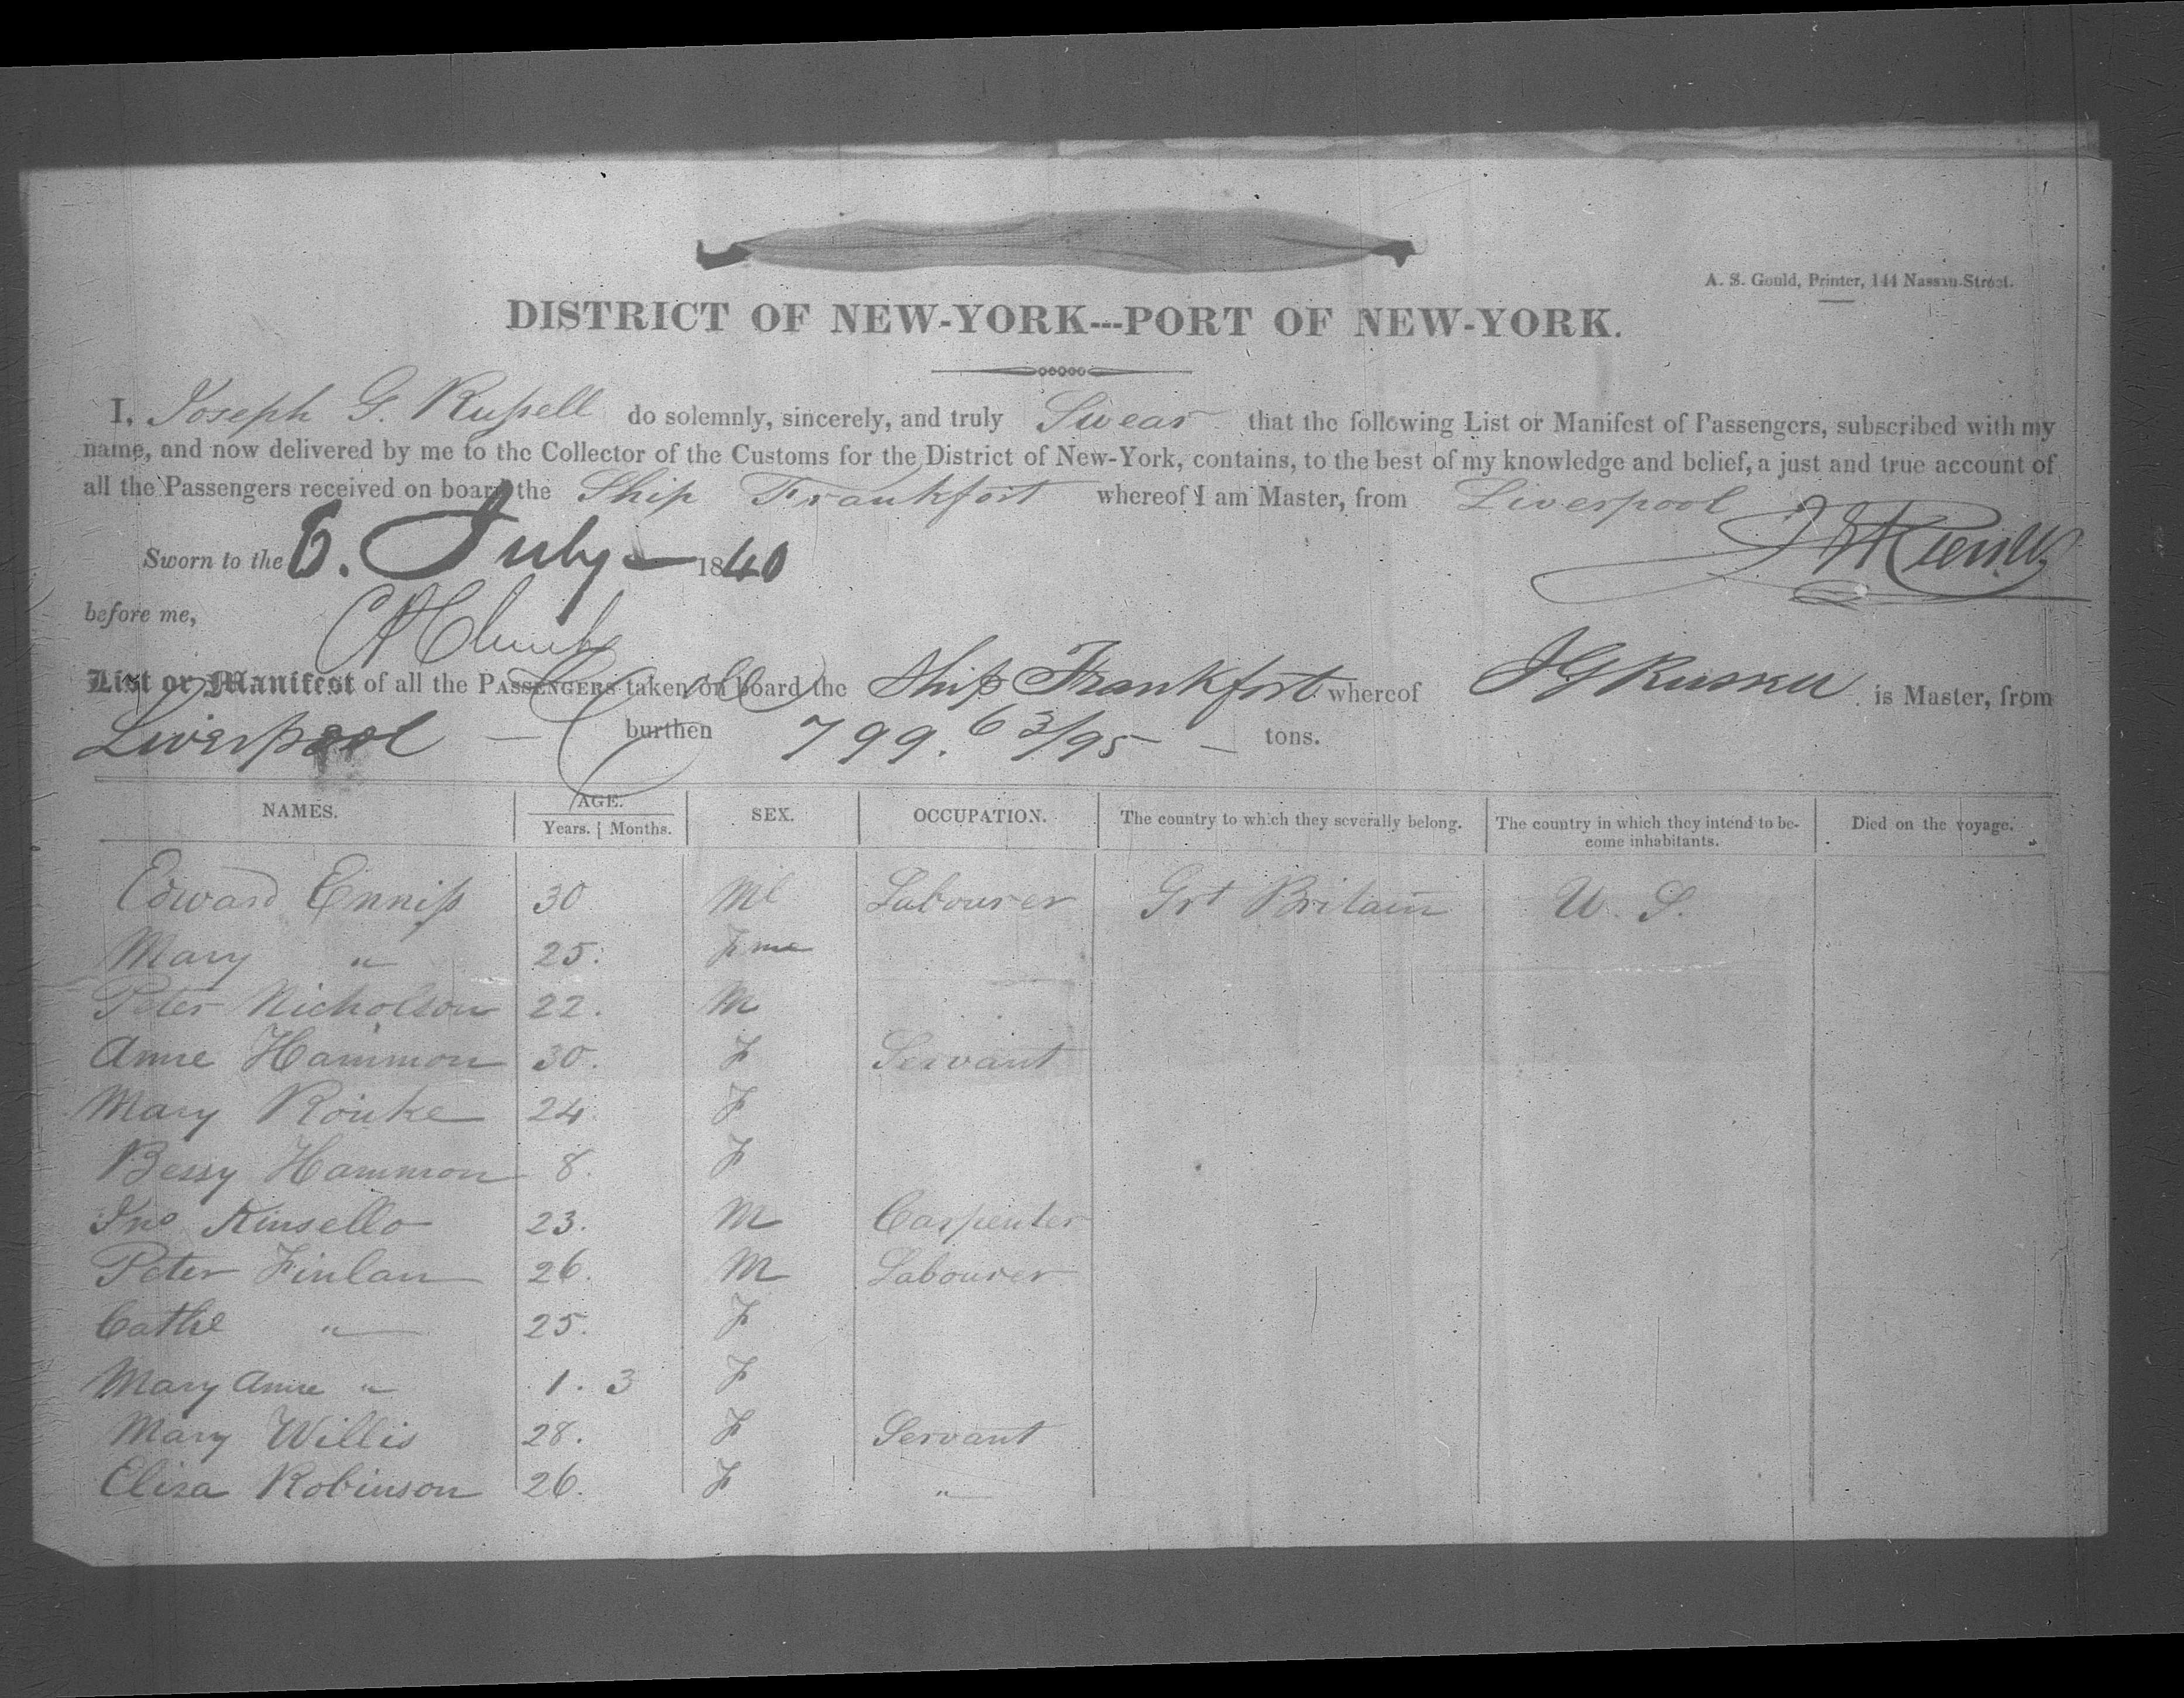 A. S. Gould, Printer, 144 Nassau Street.
DISTRICT OF NEW-YORK---PORT OF NEW-YORK.
I, Joseph G. Rußell do solemnly, sincerely, and truly Swear that the following List or Manifest of Passengers, subscribed with my
name, and now delivered by me to the Collector of the Customs for the District of New-York, contains, to the best of my knowledge and belief, a just and true account of
all the Passengers received on board the Ship Frankfort whereof I am Master, from Liverpool
Sworn to the 6. July 1840
before me,
List or Manifest of all the PASSENGERS taken on board the Ship Frankfort whereof J G Russell is Master, from
Liverpool — burthen 799. 63/95 — tons.
NAMES. AGE. SEX. OCCUPATION. The country to which they severally belong. The country in which they intend to be- Died on the voyage.
Years. | Months. come inhabitants.
Edward Enniß 30 Ml Labourer Grt Britain U. S.
Mary " 25. Fme
Peter Nicholson 22. M
Anne Hammon 30. F Servant
Mary Rourke 24. F
Bessy Hammon 8. F
Jno Kinsello 23. M Carpenter
Peter Finlan 26. M Labourer
Cathe " 25. F
Mary Anne " 1. 3 F
Mary Willis 28. F Servant
Eliza Robinson 26. F "